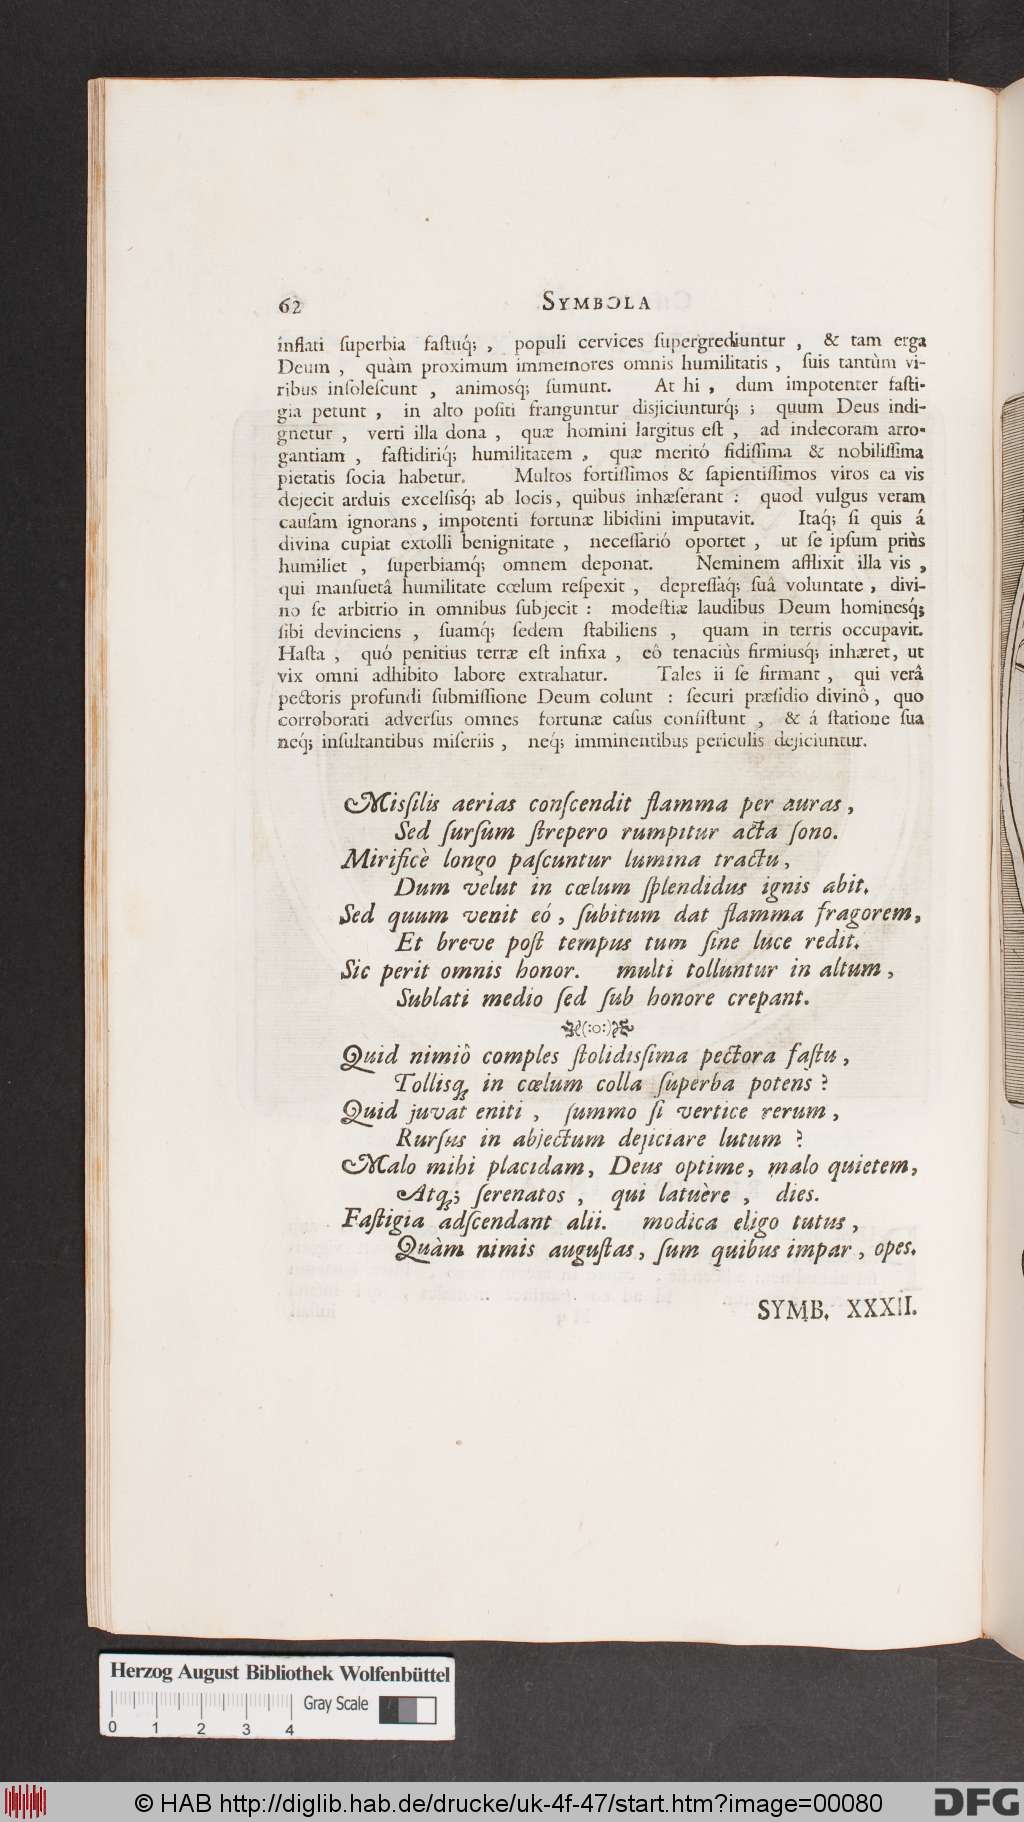 62 SYMBOLA
inflati ſuperbia faſtuq́; , populi cervices ſupergrediuntur , & tam erga
Deum , quàm proximum immemores omnis humilitatis , ſuis tantùm vi-
ribus inſoleſcunt , animosq́; ſumunt. At hi , dum impotenter faſti-
gia petunt , in alto poſiti franguntur disjiciunturq́; ; quum Deus indi-
gnetur , verti illa dona , quæ homini largitus eſt , ad indecoram arro-
gantiam , faſtidiriq́; humilitatem , quæ meritó fidiſſima & nobiliſſima
pietatis ſocia habetur. Multos fortiſſimos & ſapientiſſimos viros ea vis
dejecit arduis excelſisq́; ab locis , quibus inhæſerant : quod vulgus veram
cauſam ignorans , impotenti fortunæ libidini imputavit. Itaq́; ſi quis á
divina cupiat extolli benignitate , neceſſarió oportet , ut ſe ipſum priùs
humiliet , ſuperbiamq́; omnem deponat. Neminem afflixit illa vis ,
qui manſuetâ humilitate cœlum reſpexit , depreſſaq́; ſuâ voluntate , divi-
no ſe arbitrio in omnibus ſubjecit : modeſtiæ laudibus Deum hominesq́;
ſibi devinciens , ſuamq́; ſedem ſtabiliens , quam in terris occupavit.
Haſta , quó penitius terræ eſt infixa , eô tenaciùs firmiusq́; inhæret , ut
vix omni adhibito labore extrahatur. Tales ii ſe firmant , qui verâ
pectoris profundi ſubmiſſione Deum colunt : ſecuri præſidio divinô , quo
corroborati adverſus omnes fortunæ caſus conſiſtunt , & á ſtatione ſua
neq́; inſultantibus miſeriis , neq́; imminentibus periculis dejiciuntur.
Misſilis aerias conſcendit flamma per auras ,
Sed ſurſum ſtrepero rumpitur acta ſono.
Mirificè longo paſcuntur lumina tractu ,
Dum velut in cœlum ſplendidus ignis abit.
Sed quum venit eó , ſubitum dat flamma fragorem ,
Et breve poſt tempus tum ſine luce redit.
Sic perit omnis honor. multi tolluntur in altum ,
Sublati medio ſed ſub honore crepant.
(:o:)
Quid nimiô comples ſtolidisſima pectora faſtu ,
Tollisq; in cœlum colla ſuperba potens ?
Quid juvat eniti , ſummo ſi vertice rerum ,
Rurſus in abjectum dejiciare lutum ?
Malo mihi placidam , Deus optime , malo quietem ,
Atq; ſerenatos , qui latuère , dies.
Faſtigia adſcendant alii. modica eligo tutus ,
Quàm nimis auguſtas , ſum quibus impar , opes.
SYMB. XXXII.
Herzog August Bibliothek Wolfenbüttel
Gray Scale
0 1 2 3 4
© HAB http://diglib.hab.de/drucke/uk-4f-47/start.htm?image=00080
DFG